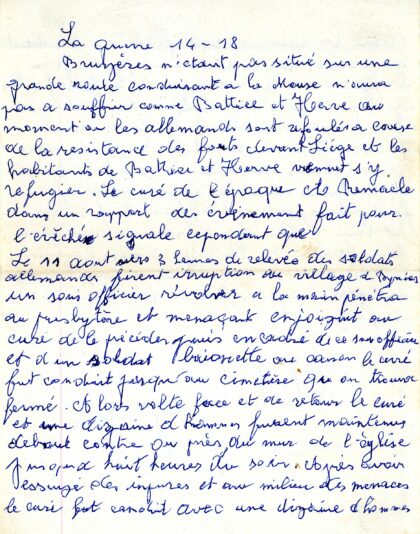 La guerre 14-18
Bruyères n'étant pas situé sur une
grande route conduisant a la Meuse n'aura
pas a souffrir comme Battice et Herve au
moment ou les allemands sont refoulés a cause
de la resistance des forts devant Liége et les
habitants de Battice et Herve viennent s'y
refugier. Le curé de l'époque Remacle
dans un rapport des événement fait pour
l'évêché signale cependant que
Le 11 aout vers 3 heures de relevée des soldats
allemands firent irruption au village d
un sous officier révolver a la main pénétra
au presbytère et menaçant enjoignit au
curé de le précéder puis encadré de ce sous officier
et d'un soldat baionette au canon le curé
fut conduit jusqu'au cimetière que on trouva
fermé. Alors volte face et de retour le curé
et une dizaine d'hommes furent maintenus
debout contre ou près du mur de l'église
jusqu'a huit heures du soir. Après avoir
essuyé des injures et au milieu des menaces
le curé fut conduit avec une dizaine d'hommes